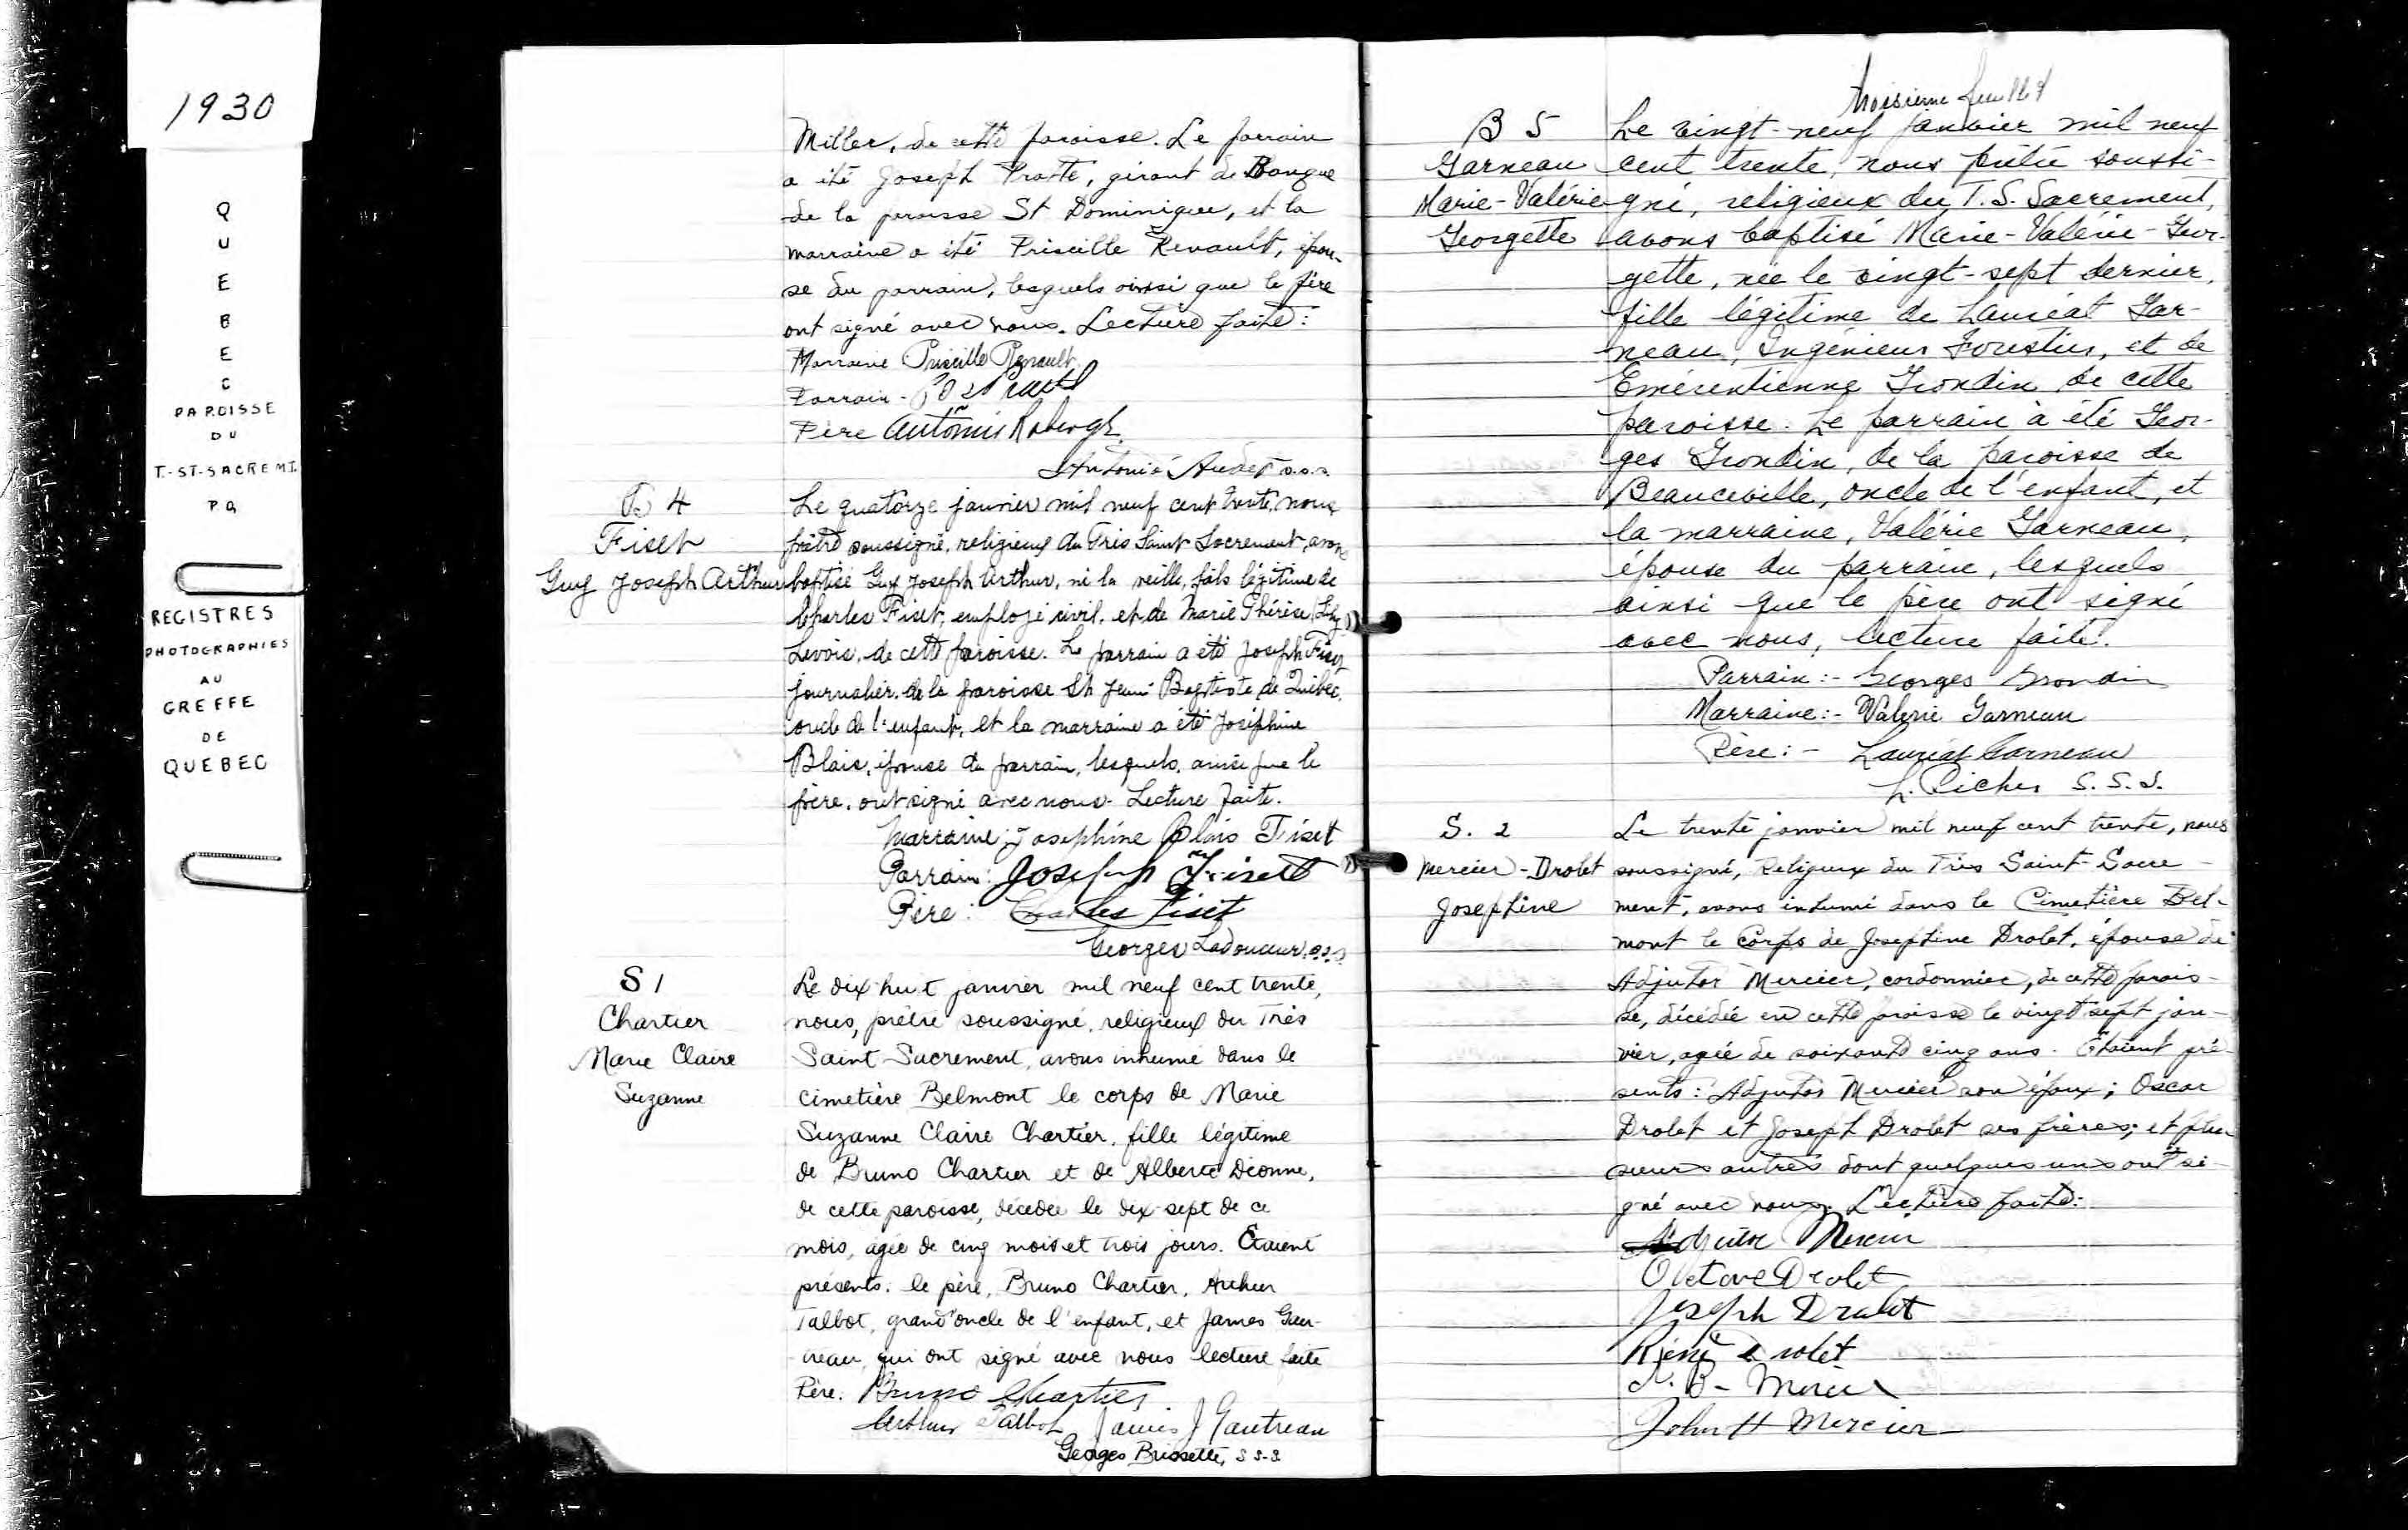 1930
QUEBEC
PAROISSE
DU
T.-ST-SACREMT.
PQ
REGISTRES
PHOTOGRAPHIES
AU
GREFFE
DE
QUEBEC
Miller, de cette paroisse. Le parrain
a été Joseph Pratte, gérant de Banque
de la paroisse St Dominique, et la
marraine a été Priscille Renault, épou-
se du parrain, lesquels ainsi que le père
ont signé avec nous. Lecture faite:
Marraine Priscille Renault
Parrain -
Père Antonio Roberge
Antonio Audet s.s.s.
B 4
Fiset
Guy Joseph Arthur
Le quatorze janvier mil neuf cent trente, nous
prêtre soussigné, religieux du Très Saint Sacrement, avons
baptisé Guy Joseph Arthur, né la veille, fils légitime de
Charles Fiset, employé civil, et de Marie Thérèse
Lavoie, de cette paroisse. Le parrain a été Joseph Fiset
journalier, de la paroisse St Jean Baptiste de Québec,
oncle de l'enfant, et la marraine a été Joséphine
Blais, épouse du parrain, lesquels, ainsi que le
père, ont signé avec nous. Lecture faite.
Marraine: Josephine Blais Fiset
Parrain: Joseph Fisett
Père: Charles Fiset
Georges Ladouceur, s.s.s.
S 1
Chartier
Marie Claire
Suzanne
Le dix-huit janvier mil neuf cent trente,
nous, prêtre soussigné, religieux du Très
Saint Sacrement, avons inhumé dans le
cimetière Belmont le corps de Marie
Suzanne Claire Chartier, fille légitime
de Bruno Chartier et de Alberte Dionne,
de cette paroisse, décédée le dix-sept de ce
mois, agée de cinq mois et trois jours. Etaient
présents: le père, Bruno Chartier, Arthur
Talbot, grand'oncle de l'enfant, et James
qui ont signé avec nous lecture faite
Père: Bruno Chartier
Arthur Talbot James J Gautreau
Georges Brissette, s.s.s.
troisième feuillet
B 5
Garneau
Marie-Valérie
Georgette
Le vingt-neuf janvier mil neuf
cent trente, nous prêtre soussi-
gné, religieux du T. S. Sacrement,
avons baptisé Marie-Valérie-Geor-
gette, née le vingt-sept dernier,
fille légitime de Lauréat Gar-
neau, Ingénieur Forestier, et de
Emérentienne Grondin de cette
paroisse. Le parrain à été Geor-
ges Grondin, de la paroisse de
Beauceville, oncle de l'enfant, et
la marraine, Valérie Garneau,
épouse du parrain, lesquels
ainsi que le père ont signé
avec nous, lecture faite.
Parrain:- Georges Grondin
Marraine:- Valérie Garneau
Père:- Lauréat Garneau
L. Piché s.s.s.
S. 2
Mercier-Drolet
Josephine
Le trente janvier mil neuf cent trente, nous
soussigné, Religieux du Très Saint-Sacre-
ment, avons inhumé dans le Cimetière Bel-
mont le corps de Josephine Drolet, épouse de
Adjutor Mercier, cordonnier, de cette parois-
se, décédée en cette paroisse le vingt sept jan-
vier, agée de soixante cinq ans. Etaient pré-
sents: Adjutor Mercier son époux; Oscar
Drolet et Joseph Drolet ses frères; et plu-
sieurs autres dont quelques uns ont si-
gné avec nous. Lecture faite:
Adjutor Mercier
Octave Drolet
Joseph Drolet
René Drolet
Mercier
John H Mercier